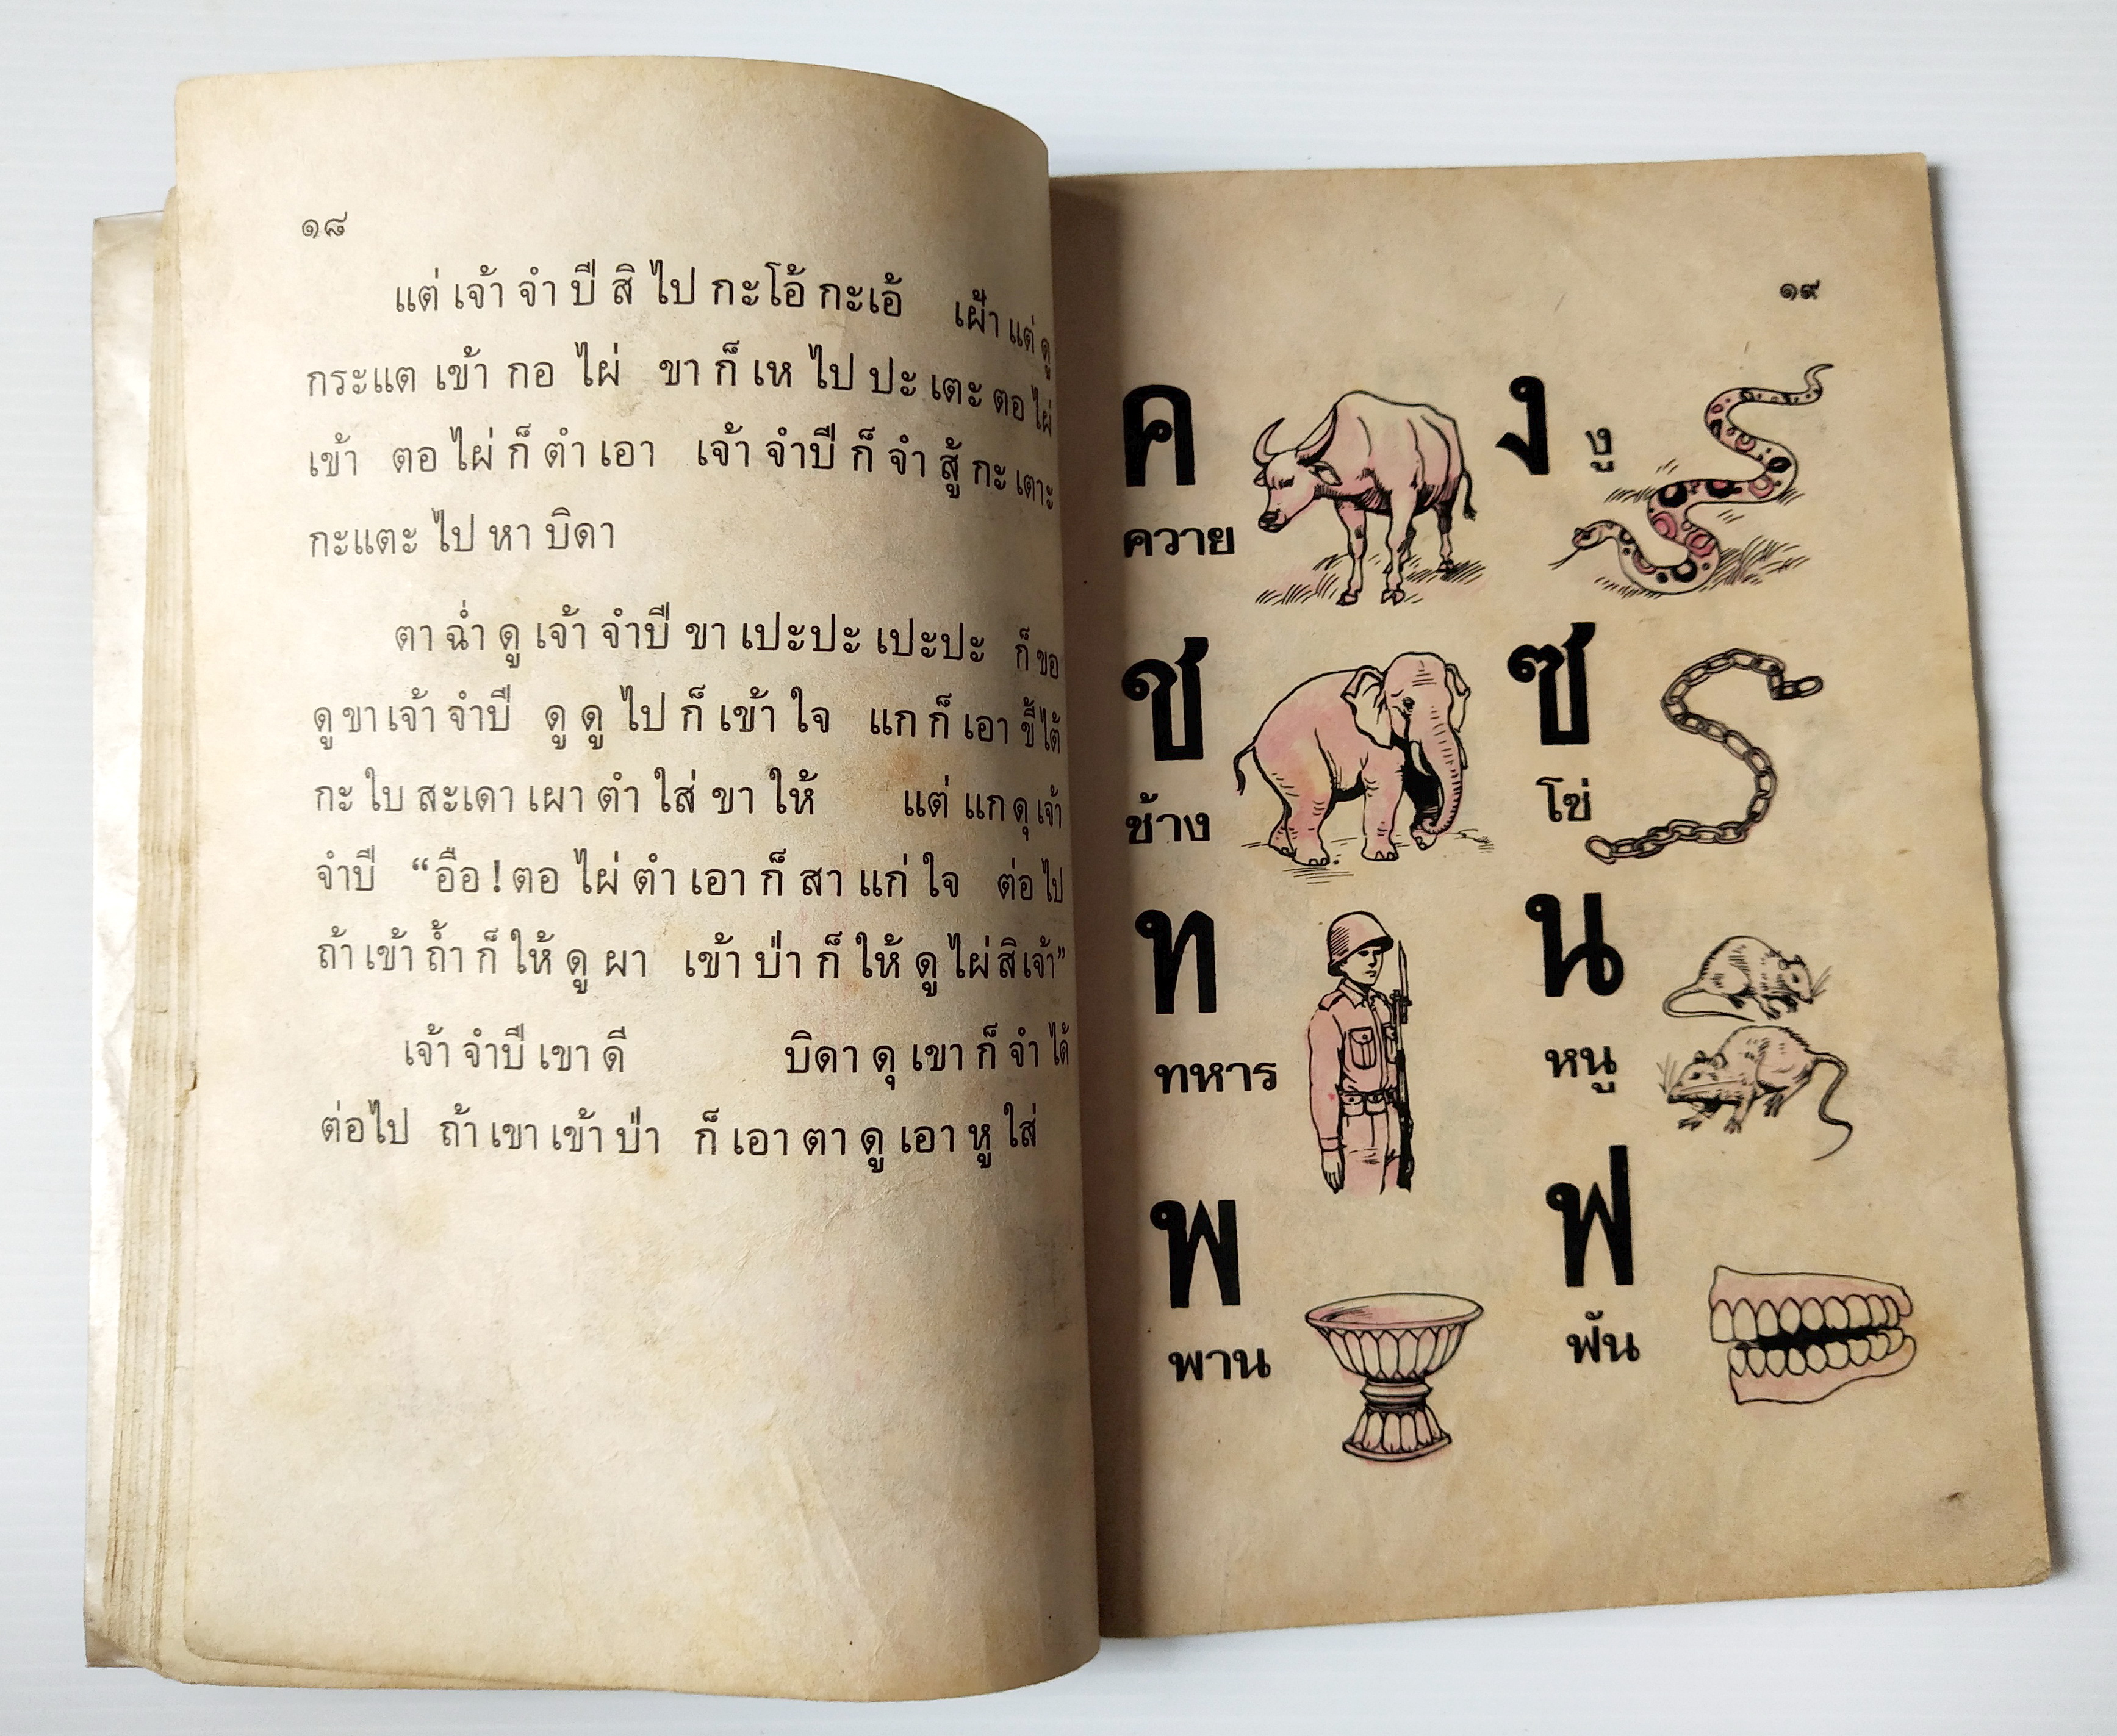 ๑๘
แต่ เจ้า จำ ปี สิ ไป กะโอ้ กะเอ้ เผ้า แต่ ดู
กระแต เข้า กอ ไผ่ ขา ก็ เห ไป ปะ เตะ ตอ ไผ่
เข้า ตอ ไผ่ ก็ ตำ เอา เจ้า จำปี ก็ จำ สู้ กะ เตาะ
กะแตะ ไป หา บิดา
ตา ฉ่ำ ดู เจ้า จำปี ขา เปะปะ เปะปะ ก็ ขอ
ดู ขา เจ้า จำปี ดู ดู ไป ก็ เข้า ใจ แก ก็ เอา ขี้ ไต้
กะ ใบ สะเดา เผา ตำ ใส่ ขา ให้ แต่ แก ดุ เจ้า
จำปี “อือ! ตอ ไผ่ ตำ เอา ก็ สา แก่ ใจ ต่อ ไป
ถ้า เข้า ถ้ำ ก็ ให้ ดู ผา เข้า ป่า ก็ ให้ ดู ไผ่ สิ เจ้า”
เจ้า จำปี เขา ดี บิดา ดุ เขา ก็ จำ ได้
ต่อไป ถ้า เขา เข้า ป่า ก็ เอา ตา ดู เอา หู ใส่
๑๙
ค ง
ควาย งู
ช ซ
ช้าง โซ่
ท น
ทหาร หนู
พ ฟ
พาน ฟัน